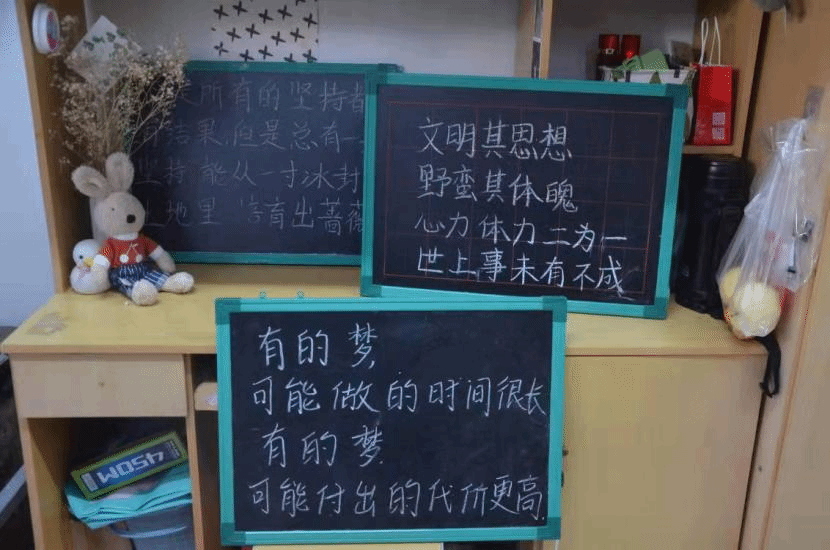 所有的坚持都
结果,但是总有一
坚持 能从一寸冰封
土地里 培育出蔷薇
文明其思想
野蛮其体魄
心力体力二为一
世上事未有不成
有的梦,
可能做的时间很长
有的梦
可能付出的代价更高.
450M